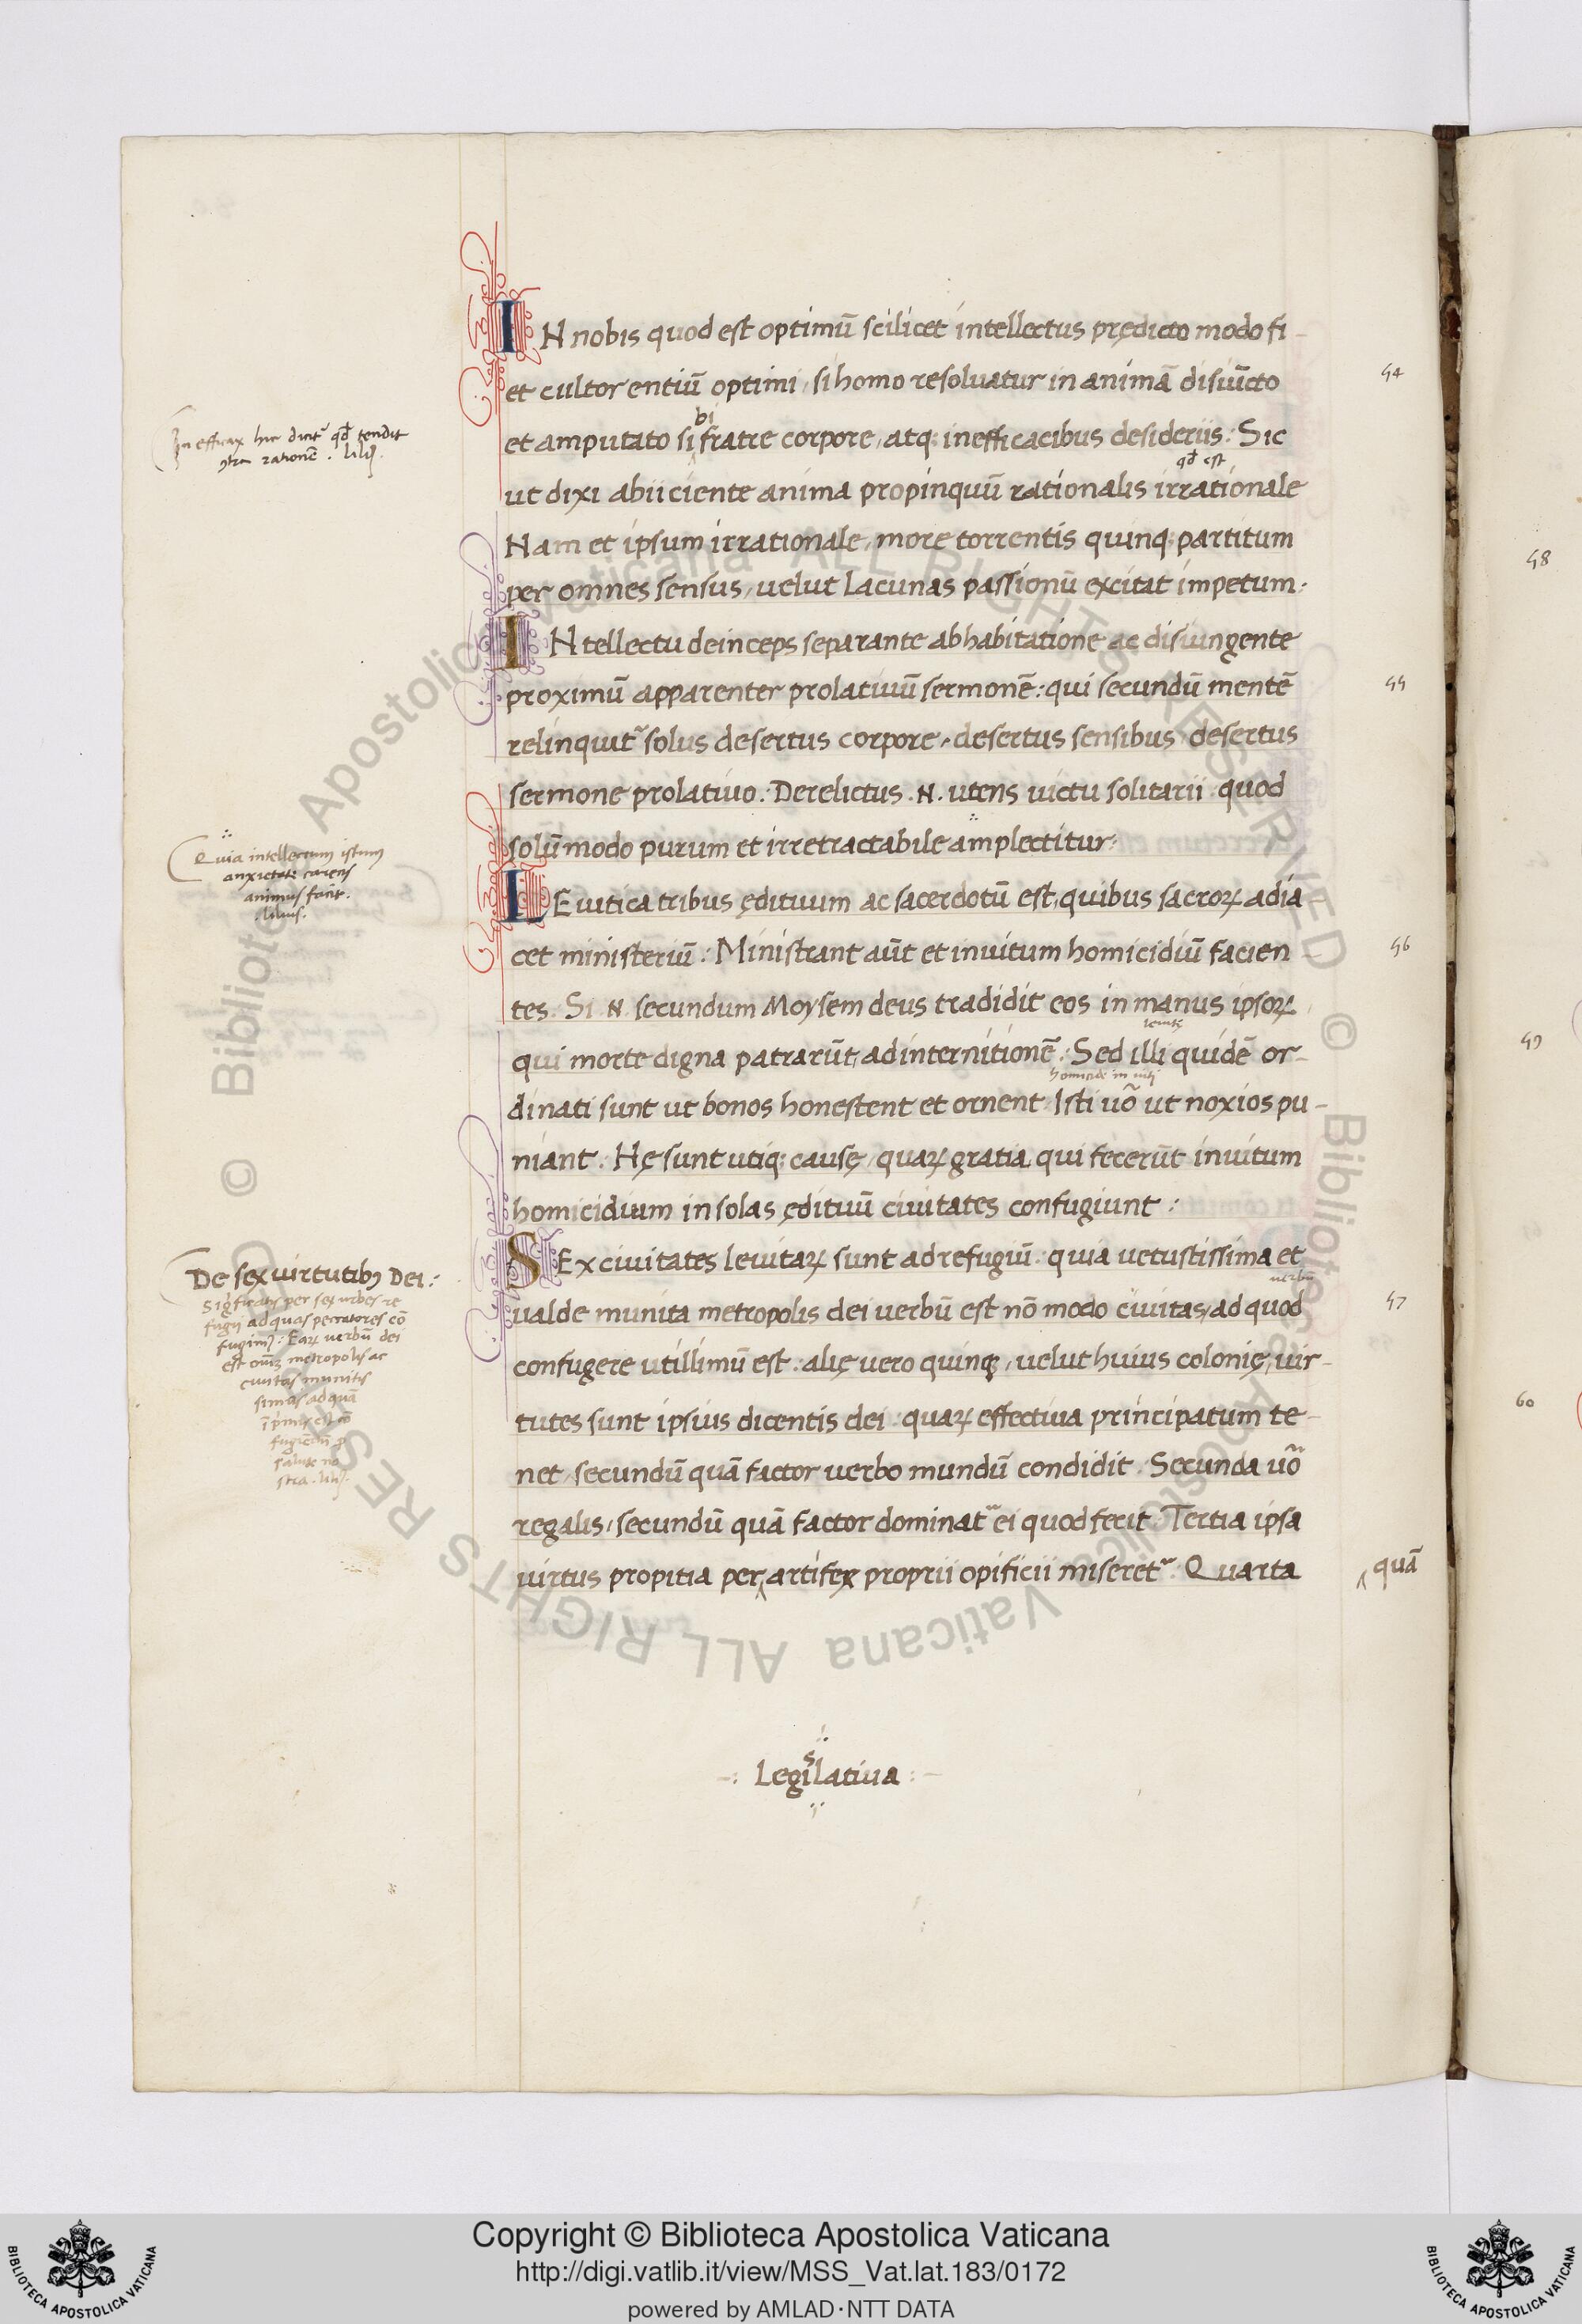 IN nobis quod est optimū scilicet intellectus prędicto modo fi-
et cultor entiū optimi, si homo resoluatur in animā disiūcto
et amputato sibi fratre corpore, atq; inefficacibus desideriis: Sic
qđ est
ut dixi abiiciente anima propinquū rationalis irrationale
Nam et ipsum irrationale, more torrentis quinq; partitum
per omnes sensus, uelut Lacunas passionū excitat impetum:
INtellectu deinceps separante ab habitatione ac disiungente
proximū apparenter prolatiuū sermonē: qui secundū mentē
relinquit᷑ solus desertus corpore, desertus sensibus desertus
sermone prolatiuo: Derelictus .N. utens uictu solitarii quod
solūmodo purum et irretractabile amplectitur:
LEuitica tribus ędituum ac sacerdotū est, quibus sacroꝝ adia-
cet ministeriū: Ministrant aūt et inuitum homicidiū facien-
tes. Si .N. secundum Moysem deus tradidit eos in manus ipsoꝝ
qui morte digna patrarūt, ad internitionē: Sed illi quidē or-
dinati sunt ut bonos honestent et ornent. Isti uō ut noxios pu-
niant: Hę sunt utiq; causę, quaꝝ gratia qui fecerūt inuitum
homicidium in solas ędituū ciuitates confugiunt:
SEx ciuitates leuitaꝝ sunt ad refugiū: quia uetustissima et
uerbū
ualde munita metropolis dei uerbū est nō modo ciuitas, ad quod
confugere utillimū est: alię uero quinq;, uelut huius colonię, uir-
tutes sunt ipsius dicentis dei: quaꝝ effectiua principatum te-
net, secundū quā factor uerbo mundū condidit. Secunda uō
regalis, secundū quā factor dominat᷑ ei quod fecit. Tertia ipsa
uirtus propitia per artifex proprii opificii miseret᷑: Quarta
quā
Legislatiua
In efficax hic dicit᷑ qđ tendit
ꝯtra rationē. lilij.
Quia intellectum istum
anxietate carens
animus
lilius.
De sex uirtutibꝫ Dei:
Significatis per sex urbes re
fugij ad quas peccatores cō
fugimꝰ: Eaꝝ uerbū dei
est oīm metropolis ac
ciuitas munitis
sima ad quā
ī primis est cō
fugiendū p
salute nō
stra. lilij.
54
55
56
57
58
59
60
Copyright © Biblioteca Apostolica Vaticana
http://digi.vatlib.it/view/MSS_Vat.lat.183/0172
powered by AMLAD·NTT DATA
BIBLIOTECA APOSTOLICA VATICANA
BIBLIOTECA APOSTOLICA VATICANA
© Biblioteca Apostolica Vaticana ALL RIGHTS RESERVED
© Biblioteca Apostolica Vaticana ALL RIGHTS RESERVED